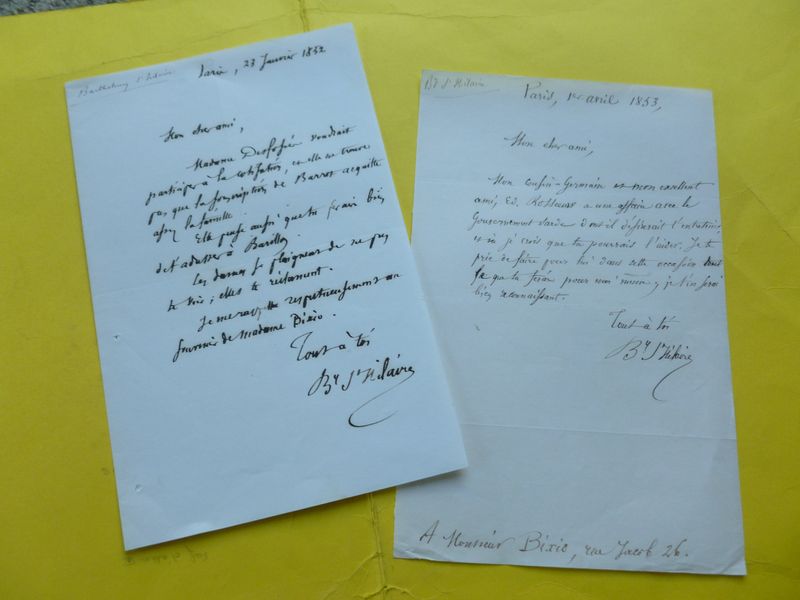 Barthelemy St Hilaire
Paris, 23 Janvier 1852
Mon cher ami,
Madame voudrait
participer à la cotisation, et elle ne trouve
pas que la souscription de Barrot acquitte
assez la famille.
Elle pense aussi que tu ferais bien
de t'adresser à
Les dames se plaignent de ne pas
te voir; elles te réclament.
respectueusement au
souvenir de Madame Bixio.
Tout à toi
By St Hilaire
By St Hilaire
Paris, 1er avril 1853,
Mon cher ami,
Mon cousin-Germain et mon excellent
ami, Ed. a une affaire avec le
Gouvernement Sarde dont il désirerait t'entretenir,
et où je crois que tu pourrais l'aider. Je te
prie de faire pour lui dans cette occasion tout
ce que tu ferais pour moi même; je t'en serai
bien reconnaissant.
Tout à toi
By St Hilaire
A Monsieur Bixio, rue Jacob 26.